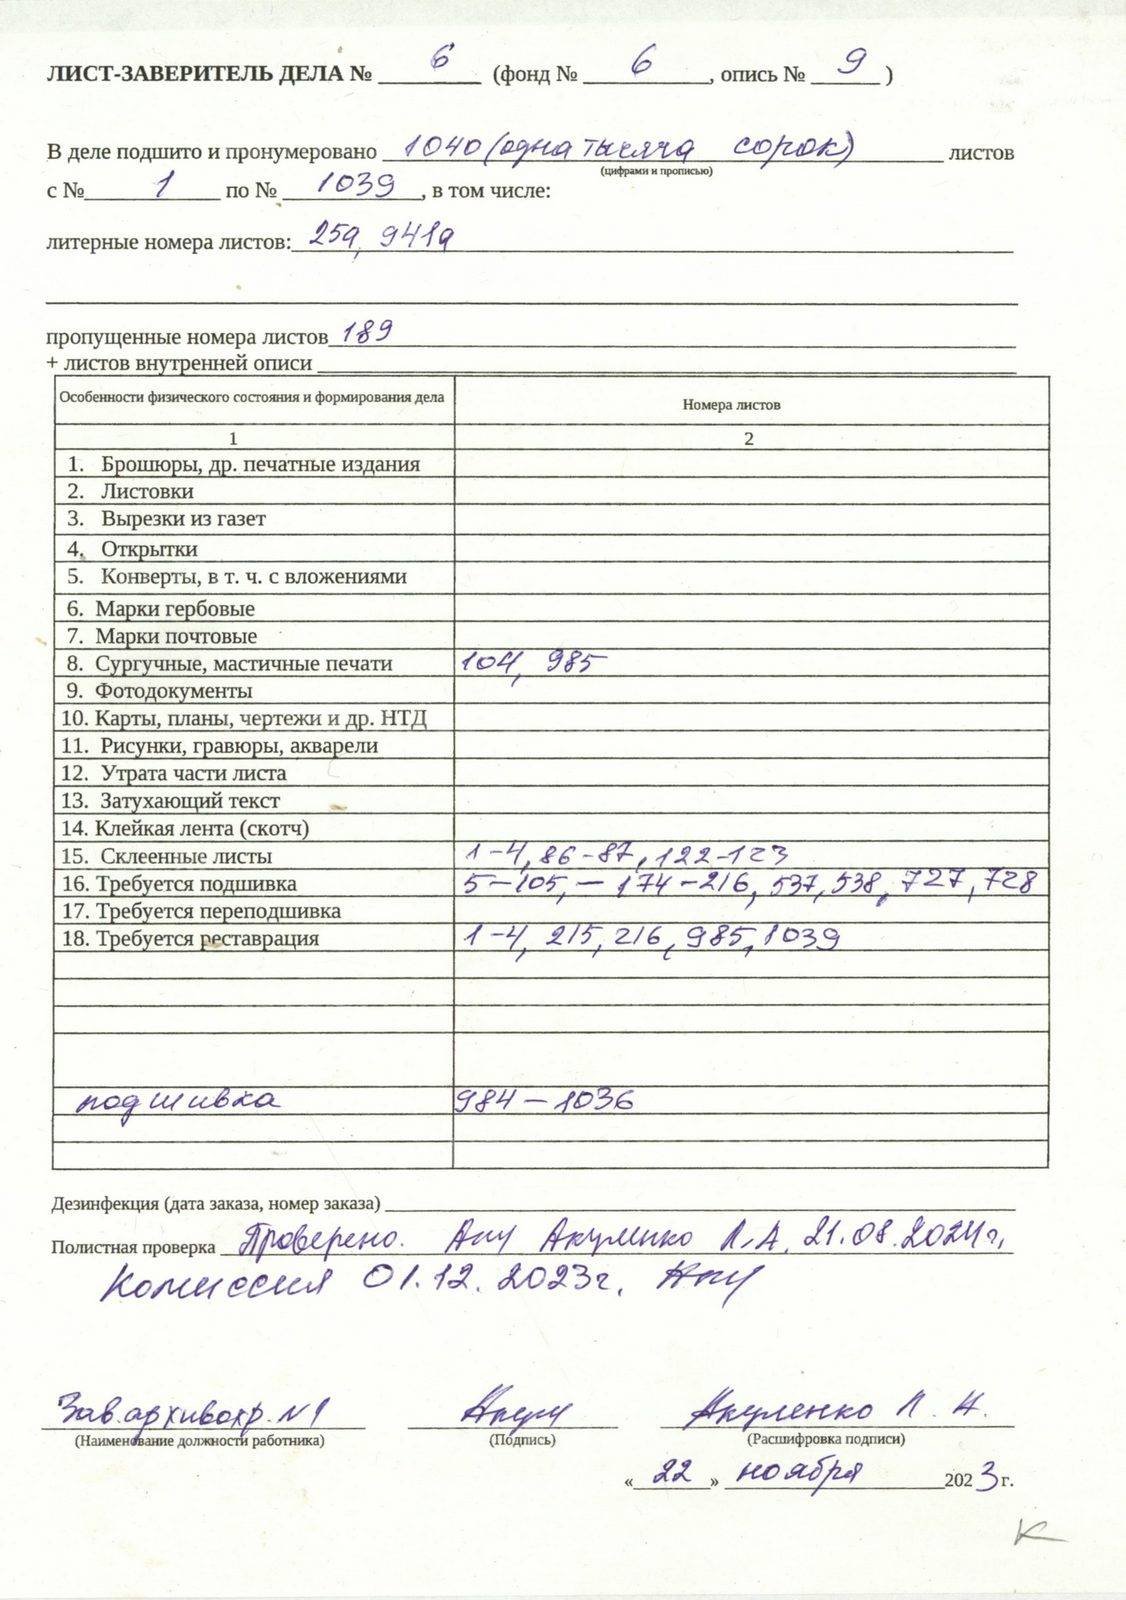 ЛИСТ-ЗАВЕРИТЕЛЬ ДЕЛА № 6 (фонд № 6, опись № 9)
В деле подшито и пронумеровано 1040 (одна тысяча сорок) листов
(цифрами и прописью)
с № 1 по № 1039, в том числе:
литерные номера листов: 25а, 941а
пропущенные номера листов 189
+ листов внутренней описи
Особенности физического состояния и формирования дела Номера листов
1 2
1. Брошюры, др. печатные издания
2. Листовки
3. Вырезки из газет
4. Открытки
5. Конверты, в т. ч. с вложениями
6. Марки гербовые
7. Марки почтовые
8. Сургучные, мастичные печати 104, 985
9. Фотодокументы
10. Карты, планы, чертежи и др. НТД
11. Рисунки, гравюры, акварели
12. Утрата части листа
13. Затухающий текст
14. Клейкая лента (скотч)
15. Склеенные листы 1-4, 86-87, 122-123
16. Требуется подшивка 5-105, - 174-216, 537, 538, 727, 728
17. Требуется переподшивка
18. Требуется реставрация 1-4, 215, 216, 985, 1039
подшивка 984-1036
Дезинфекция (дата заказа, номер заказа)
Полистная проверка Проверено. Акуленко Л.А. 21.08.2024г.
Комиссия 01.12.2023г.
Зав. архивохр. №1 Акуленко Л. А.
(Наименование должности работника) (Подпись) (Расшифровка подписи)
«22» ноября 2023 г.
К